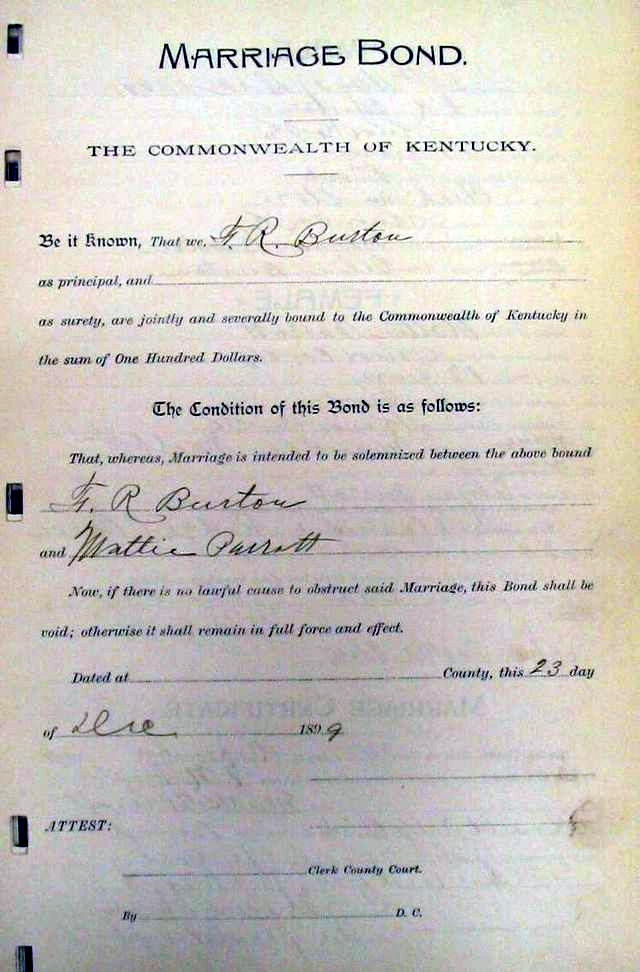 MARRIAGE BOND.
THE COMMONWEALTH OF KENTUCKY.
Be it Known, That we, F. R. Burton
as principal, and
as surety, are jointly and severally bound to the Commonwealth of Kentucky in
the sum of One Hundred Dollars.
The Condition of this Bond is as follows:
That, whereas, Marriage is intended to be solemnized between the above bound
F. R Burton
and Mattie Parrott
Now, if there is no lawful cause to obstruct said Marriage, this Bond shall be
void; otherwise it shall remain in full force and effect.
Dated at County, this 23 day
of Dec 1899
ATTEST:
Clerk County Court.
By D. C.